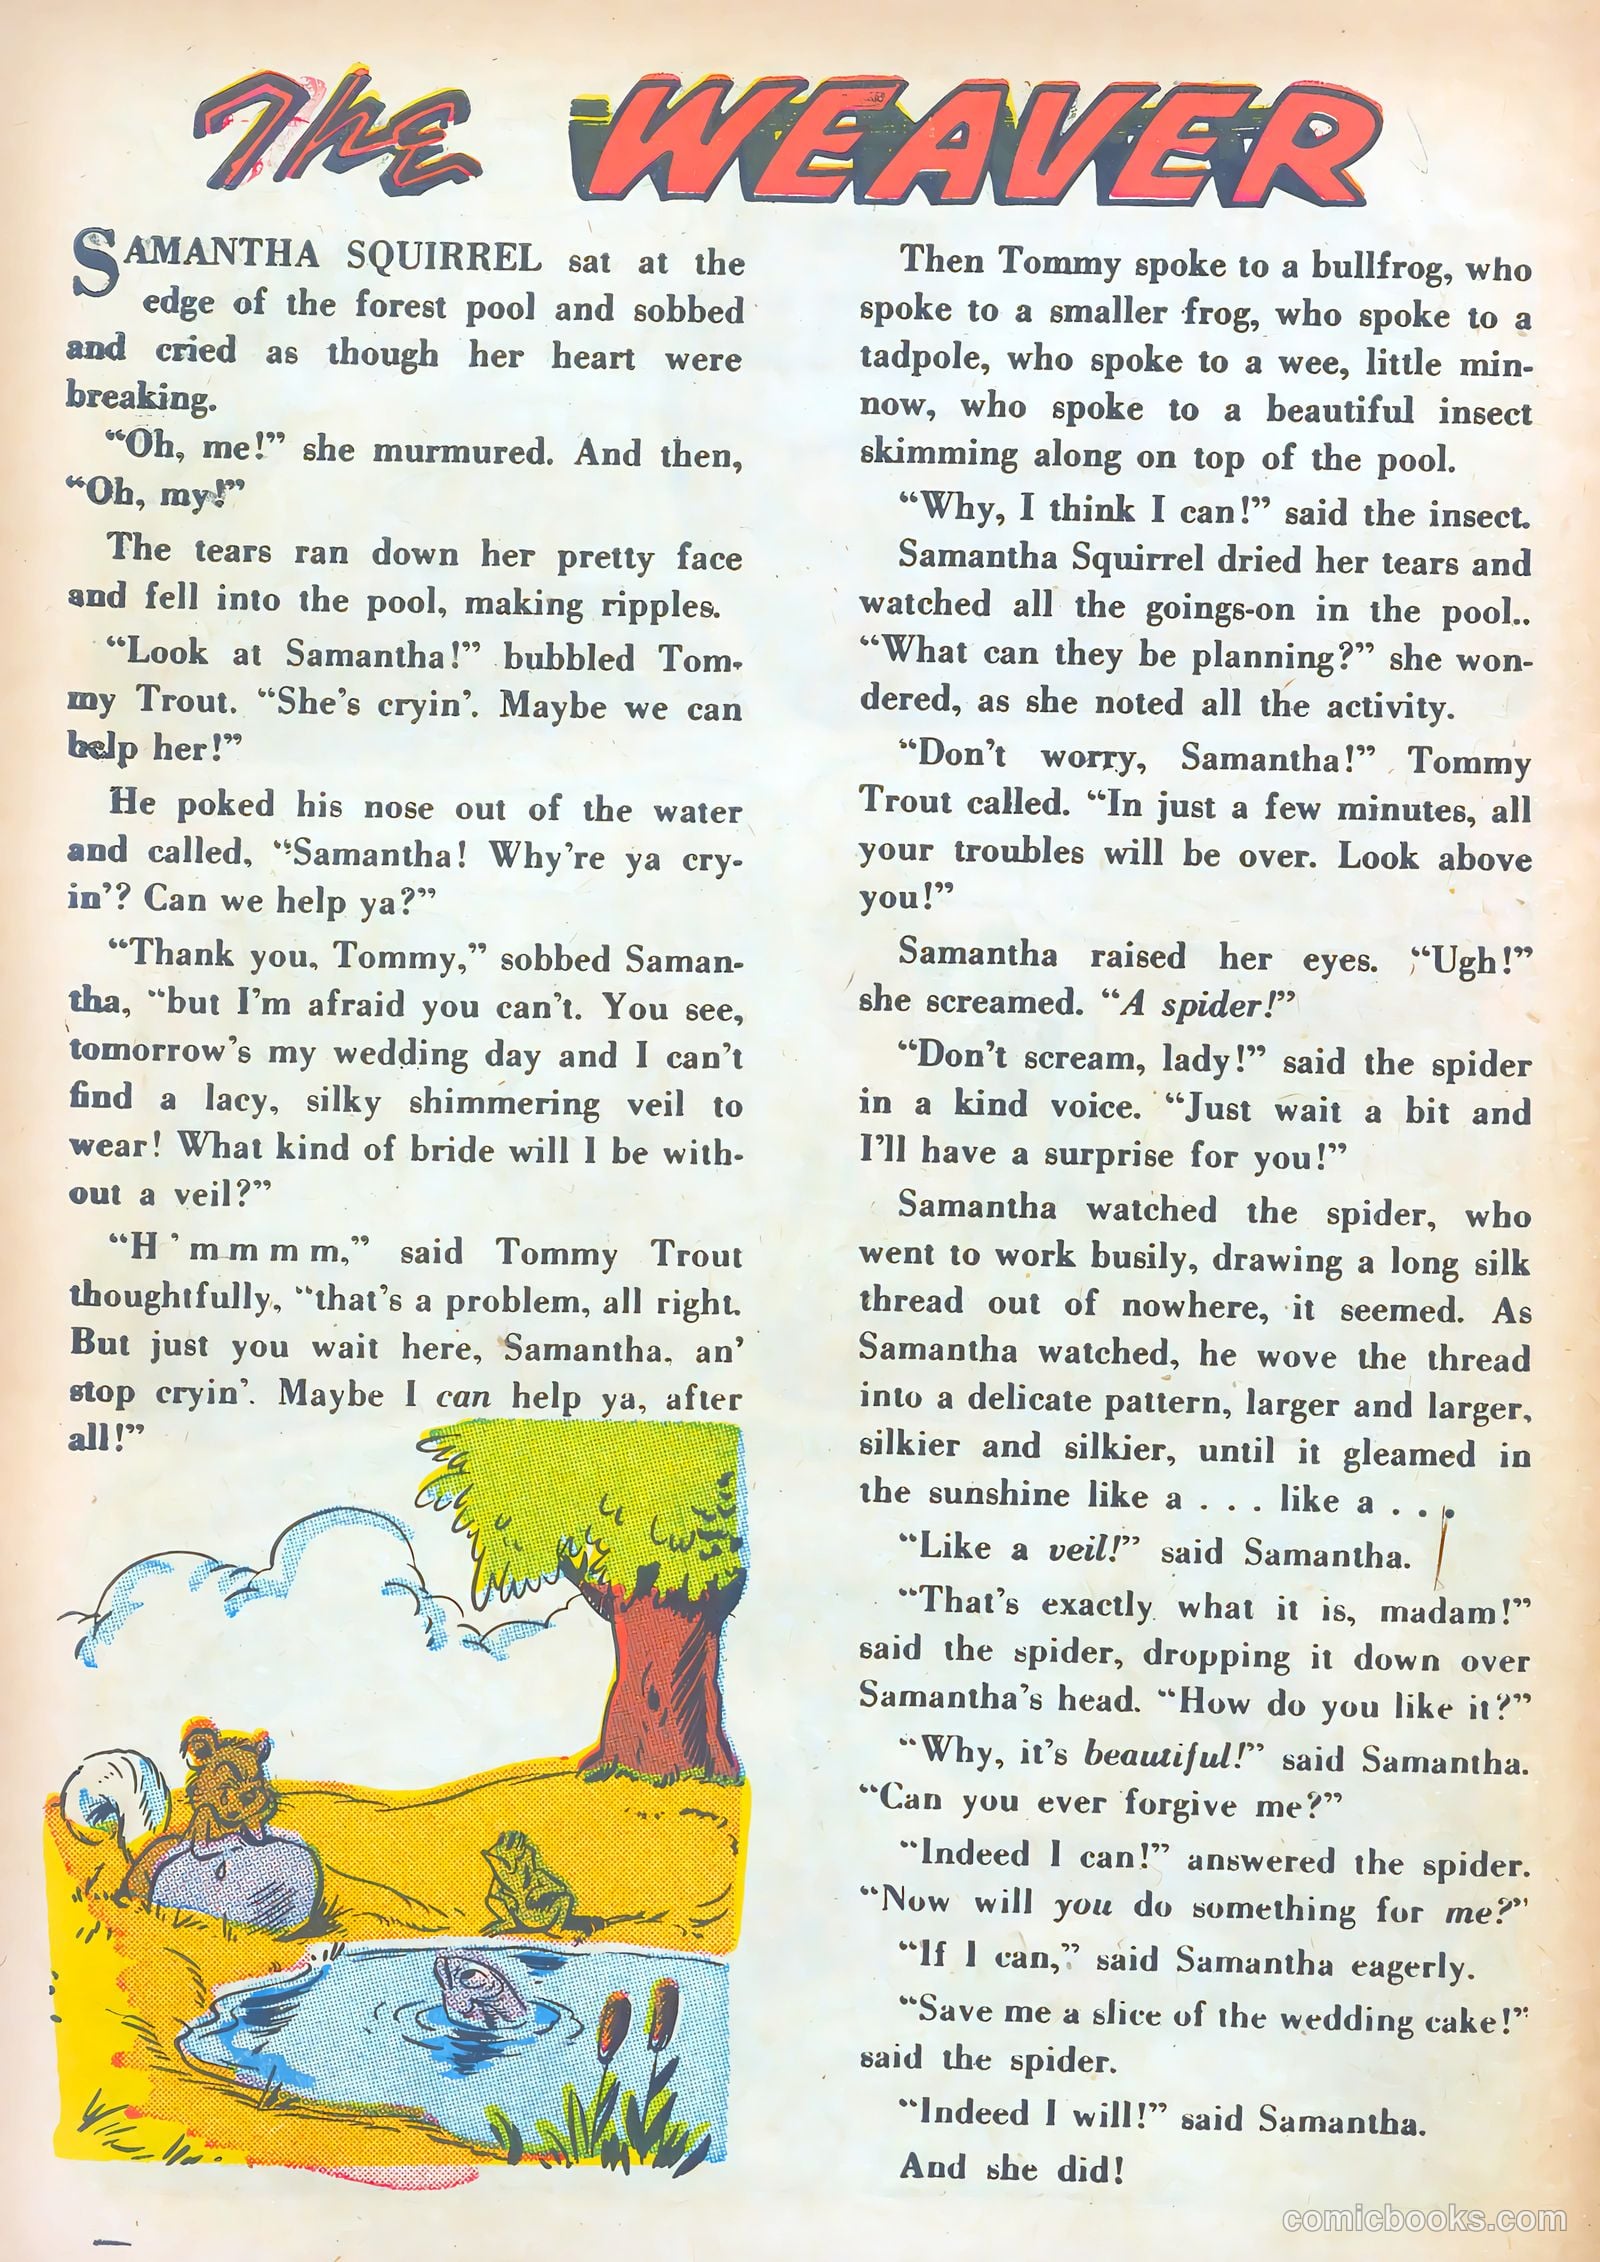 The WEAVER
SAMANTHA SQUIRREL sat at the
edge of the forest pool and sobbed
and cried as though her heart were
breaking.
“Oh, me!” she murmured. And then,
“Oh, my!”
The tears ran down her pretty face
and fell into the pool, making ripples.
“Look at Samantha!” bubbled Tom-
my Trout. “She’s cryin’. Maybe we can
help her!”
He poked his nose out of the water
and called, “Samantha! Why’re ya cry-
in’? Can we help ya?”
“Thank you, Tommy,” sobbed Saman-
tha, “but I’m afraid you can’t. You see,
tomorrow’s my wedding day and I can’t
find a lacy, silky shimmering veil to
wear! What kind of bride will I be with-
out a veil?”
“H’mmmm,” said Tommy Trout
thoughtfully, “that’s a problem, all right.
But just you wait here, Samantha, an’
stop cryin’. Maybe I can help ya, after
all!”
Then Tommy spoke to a bullfrog, who
spoke to a smaller frog, who spoke to a
tadpole, who spoke to a wee, little min-
now, who spoke to a beautiful insect
skimming along on top of the pool.
“Why, I think I can!” said the insect.
Samantha Squirrel dried her tears and
watched all the goings-on in the pool..
“What can they be planning?” she won-
dered, as she noted all the activity.
“Don’t worry, Samantha!” Tommy
Trout called. “In just a few minutes, all
your troubles will be over. Look above
you!”
Samantha raised her eyes. “Ugh!”
she screamed. “A spider!”
“Don’t scream, lady!” said the spider
in a kind voice. “Just wait a bit and
I’ll have a surprise for you!”
Samantha watched the spider, who
went to work busily, drawing a long silk
thread out of nowhere, it seemed. As
Samantha watched, he wove the thread
into a delicate pattern, larger and larger,
silkier and silkier, until it gleamed in
the sunshine like a . . . like a . . .
“Like a veil!” said Samantha.
“That’s exactly what it is, madam!”
said the spider, dropping it down over
Samantha’s head. “How do you like it?”
“Why, it’s beautiful!” said Samantha.
“Can you ever forgive me?”
“Indeed I can!” answered the spider.
“Now will you do something for me?”
“If I can,” said Samantha eagerly.
“Save me a slice of the wedding cake!”
said the spider.
“Indeed I will!” said Samantha.
And she did!
comicbooks.com